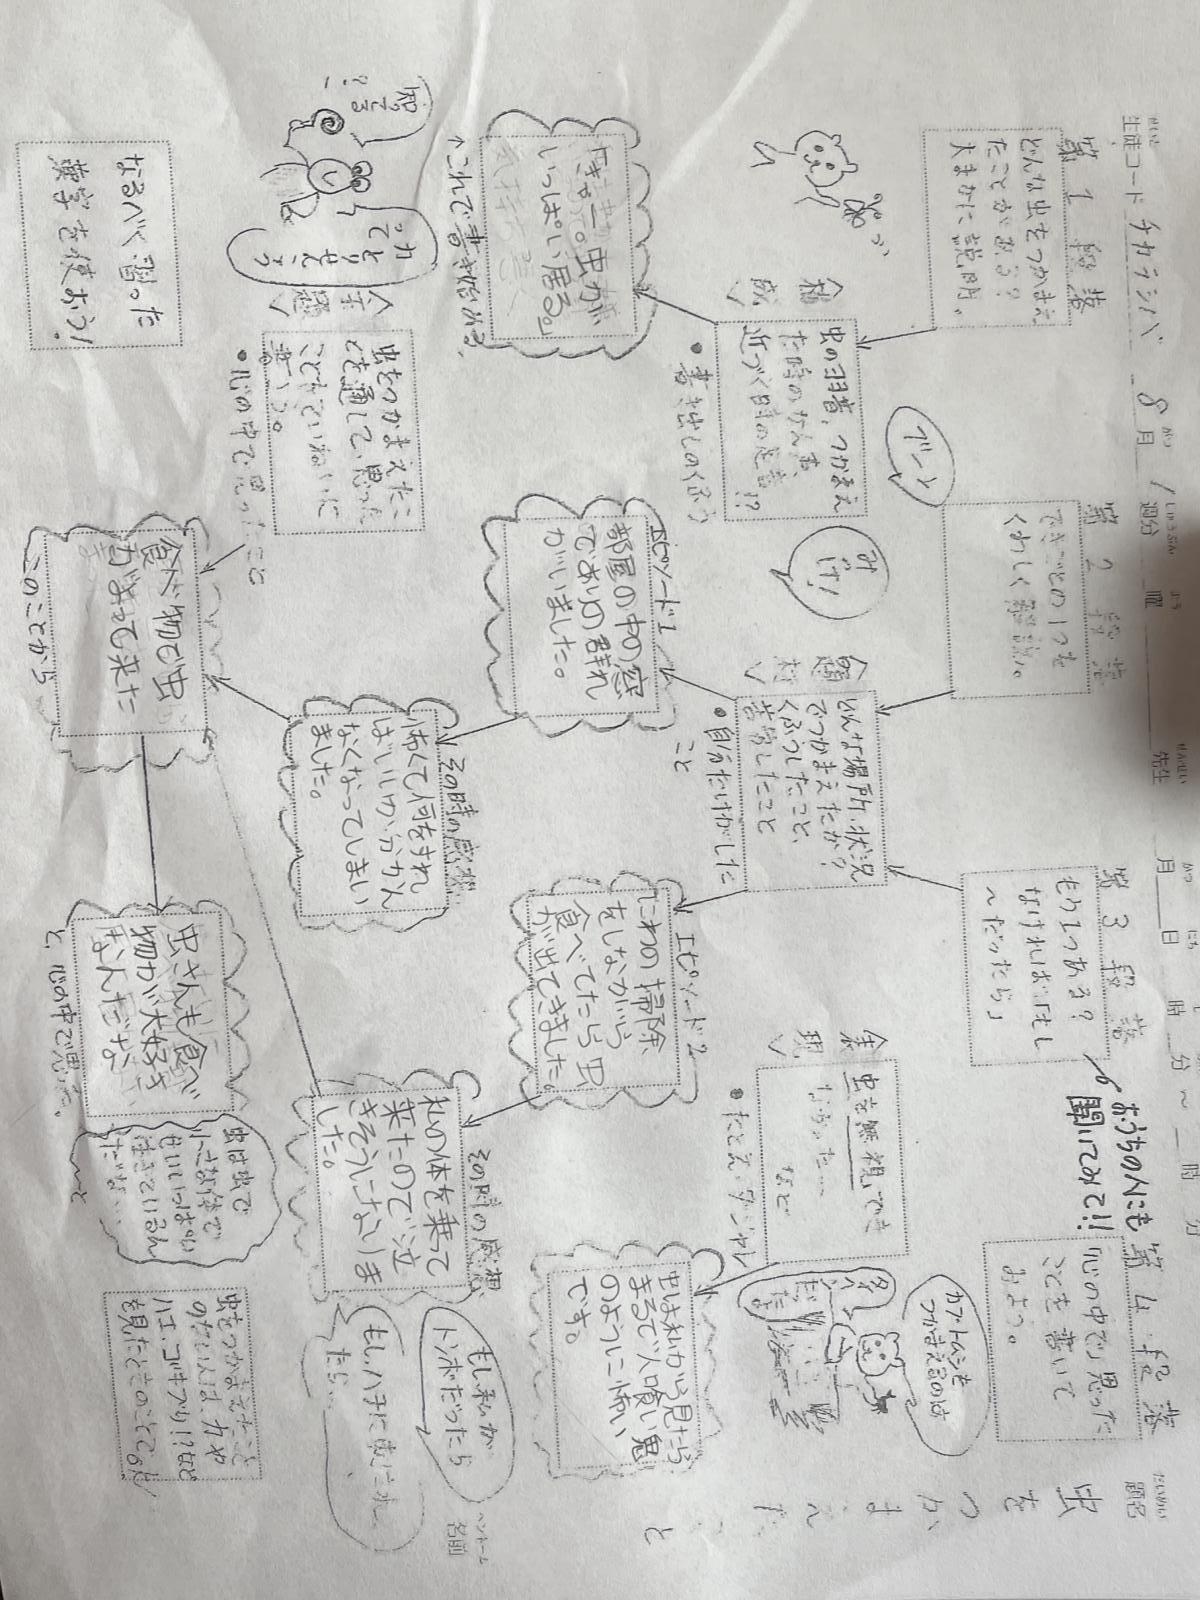 生徒コード チカラシバ 8月 1週分 曜 先生 月 日 時 分 ~ 時 分
題名 虫をつかまえたこと
名前
第1段落
どんな虫をつかまえ
たことがある?
大まかに説明。
第2段落
できごとの1つを
くわしく解説。
第3段落
もう1つある?
なければ「もし
~だったら」
おうちの人にも
聞いてみて!!
第4段落
心の中で思った
ことを書いて
みよう。
虫の羽音、つかまえ
た時のなん声、
近づく時の足音!?
・書き出しのくふう
ブーン
どんな場所、状況
でつかまえたか?
くふうしたこと、
苦労したこと
・自分だけがした
こと
みっけ!
虫を無視でき
なかった……
など
・たとえ・ダジャレ
カブトムシを
つかまえるのは
「きゃー。虫が
いっぱい居る。」
↑これで書き始める。
エピソード1
部屋の中の窓
であり の群れ
がいました。
エピソード2
にわの掃除
をしながら
食べてたら虫
が出てきました。
虫は私から見たら
まるで人喰い鬼
のように怖い
です。
その時の感想
怖くて何をすれ
ばいいか分かん
なくなってしまい
ました。
その時の感想
私の体を乗って
来たので泣
きそうになりま
した。
もし私が
トンボだったら
虫をつかまえたこ
とを通して、思った
ことをていねいに
書こう。
・心の中で思ったこと
食べ物で虫
がよって来た
このことから
虫さんも食べ
物が大好き
なんだな
と、心の中で思った。
虫は虫で
小さな体で
せいいっぱい
生きているん
だな…
~と
なるべく習った
漢字を使おう!
知ってる?